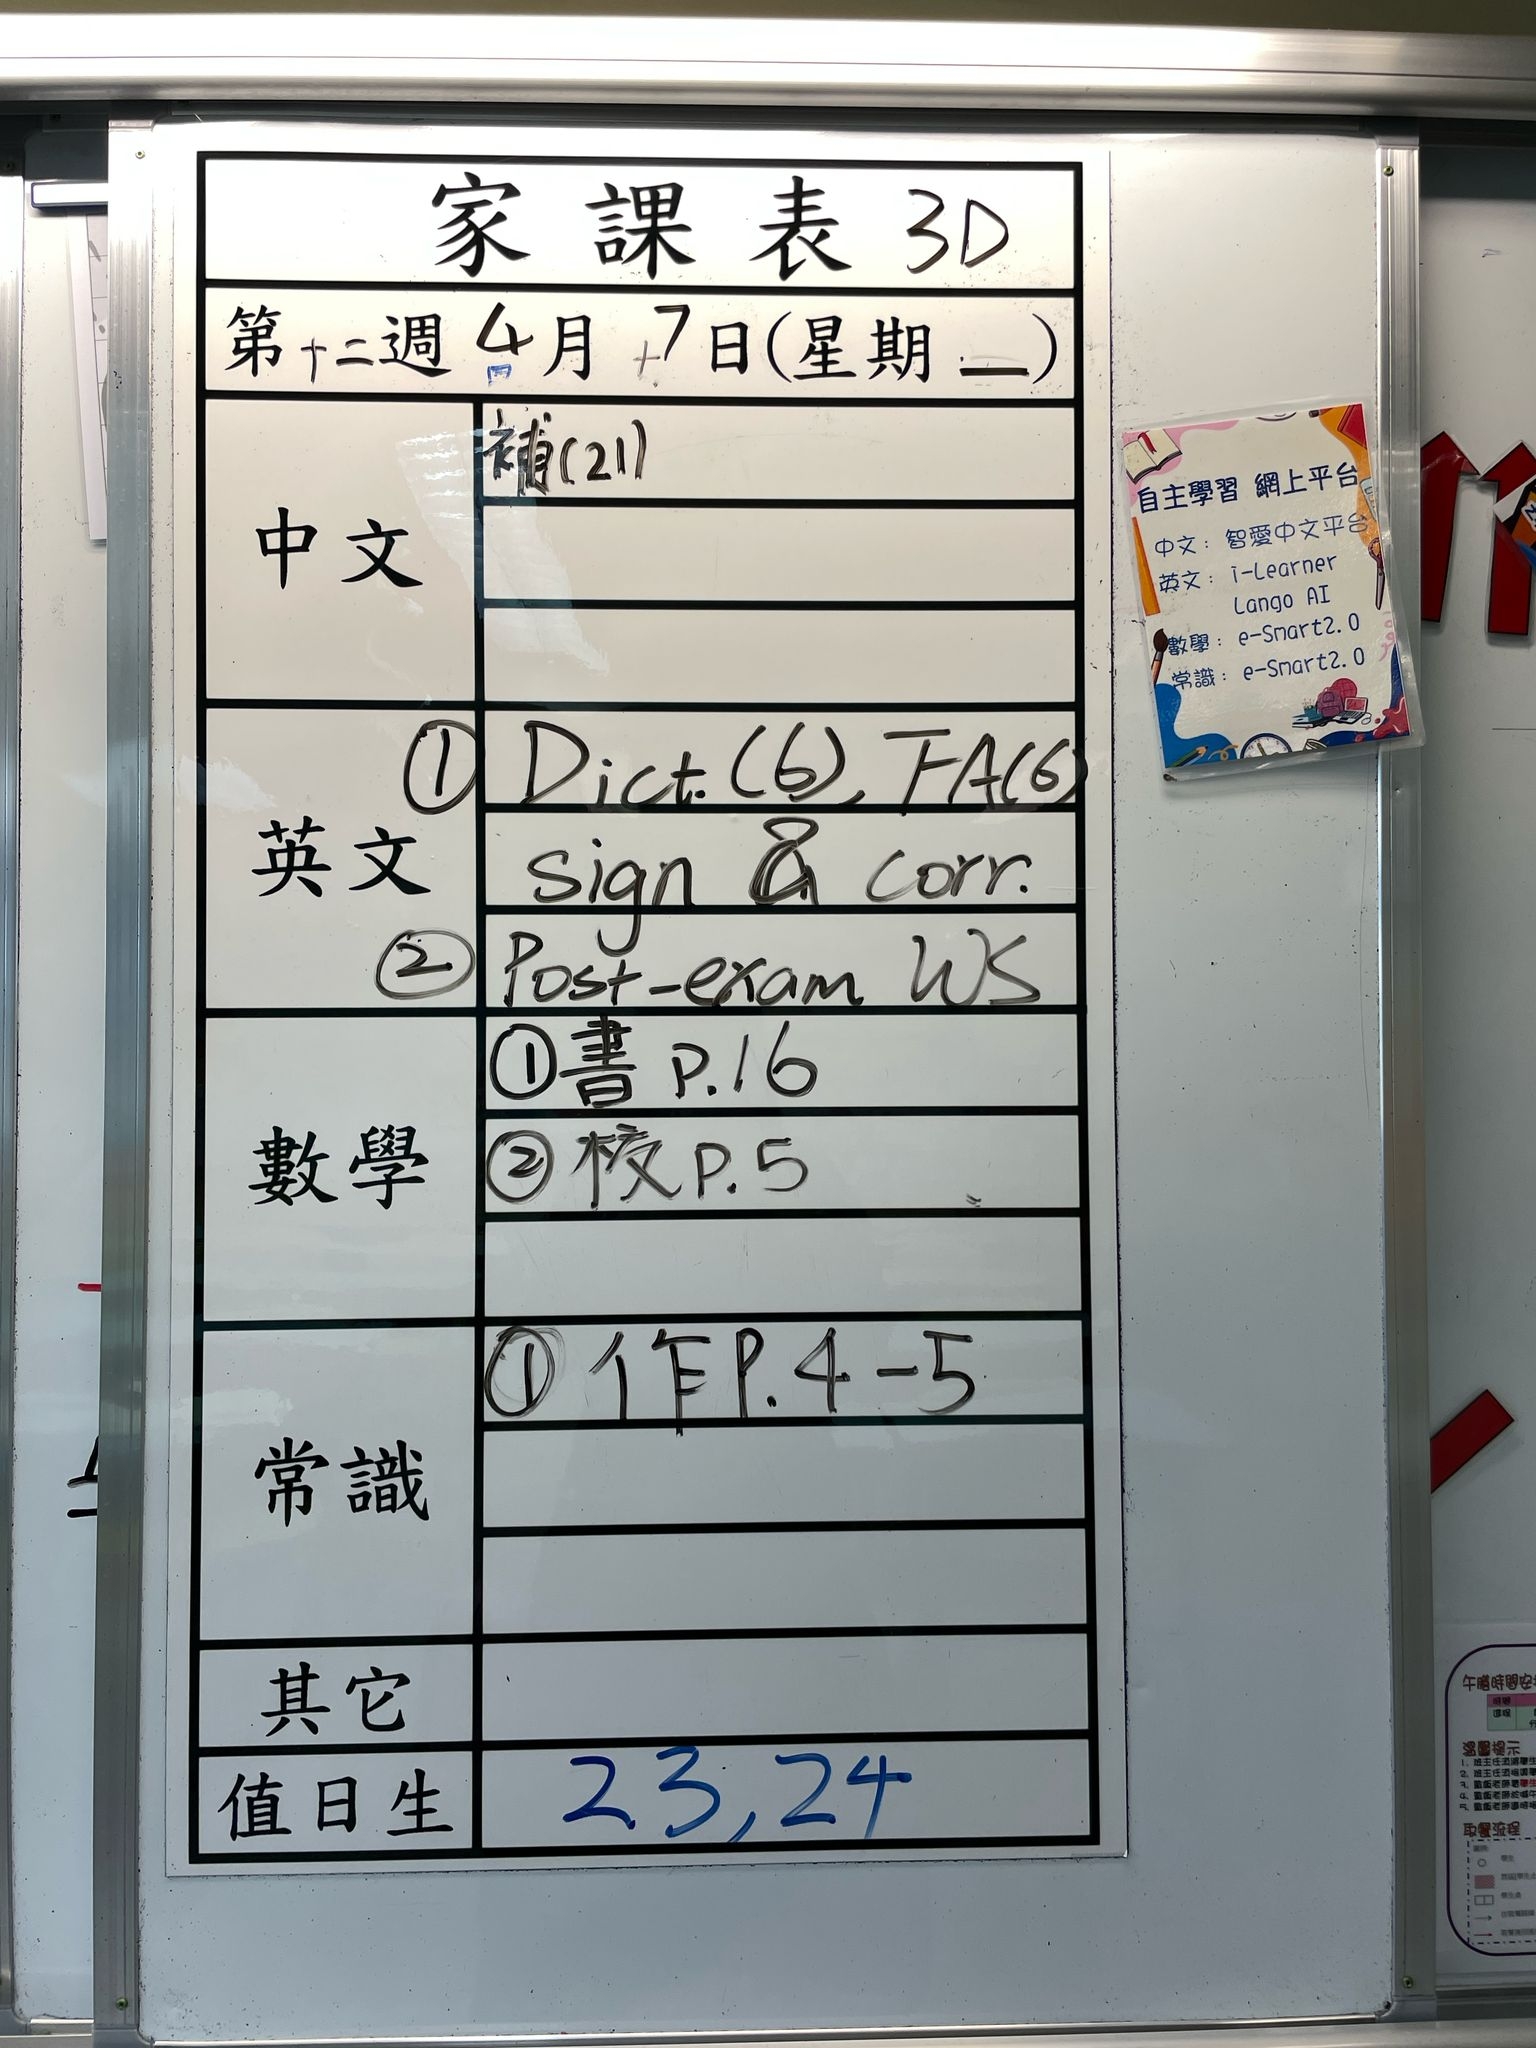 家課表 3D
第十二週 4月7日(星期一)
中文
補(21)
英文
① Dict.(6), TA(6)
sign & corr.
② Post-exam WS
數學
①書 p.16
②校 p.5
常識
① 作 P.4-5
其它
值日生
23, 24
自主學習 網上平台
中文：智愛中文平台
英文：i-Learner
Lango AI
數學：e-Smart2.0
常識：e-Smart2.0
午膳時間安
溫馨提示
取餐流程